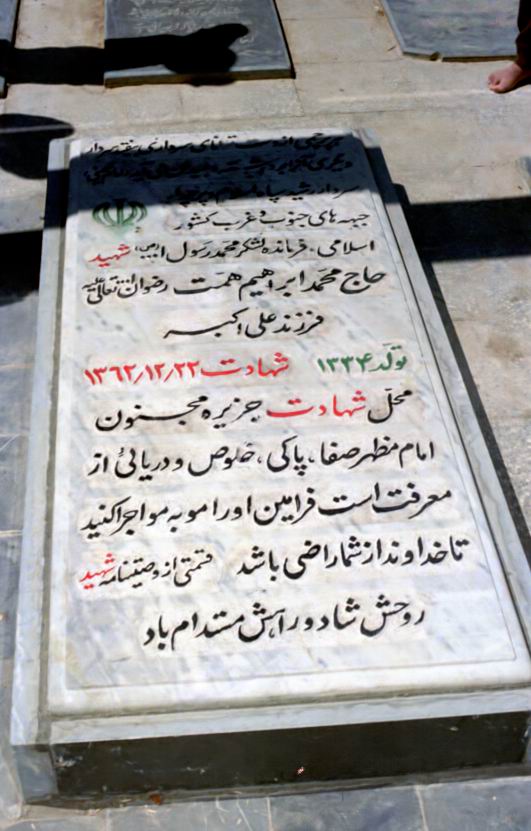 جبهه های جنوب و غرب کشور
اسلامی، فرمانده لشکر محمد رسول ا... (ص)، شهید
حاج محمد ابراهیم همت رضوان الله تعالی علیه
فرزند علی اکبر
تولد ۱۳۳۴ شهادت ۱۳۶۲/۱۲/۲۲
محل شهادت جزیره مجنون
امام مظهر صفا، پاکی، خلوص و دریائی از
معرفت است فرامین او را مو به مو اجرا کنید
تا خداوند از شما راضی باشد قسمتی از وصیتنامه شهید
روحش شاد و راهش مستدام باد